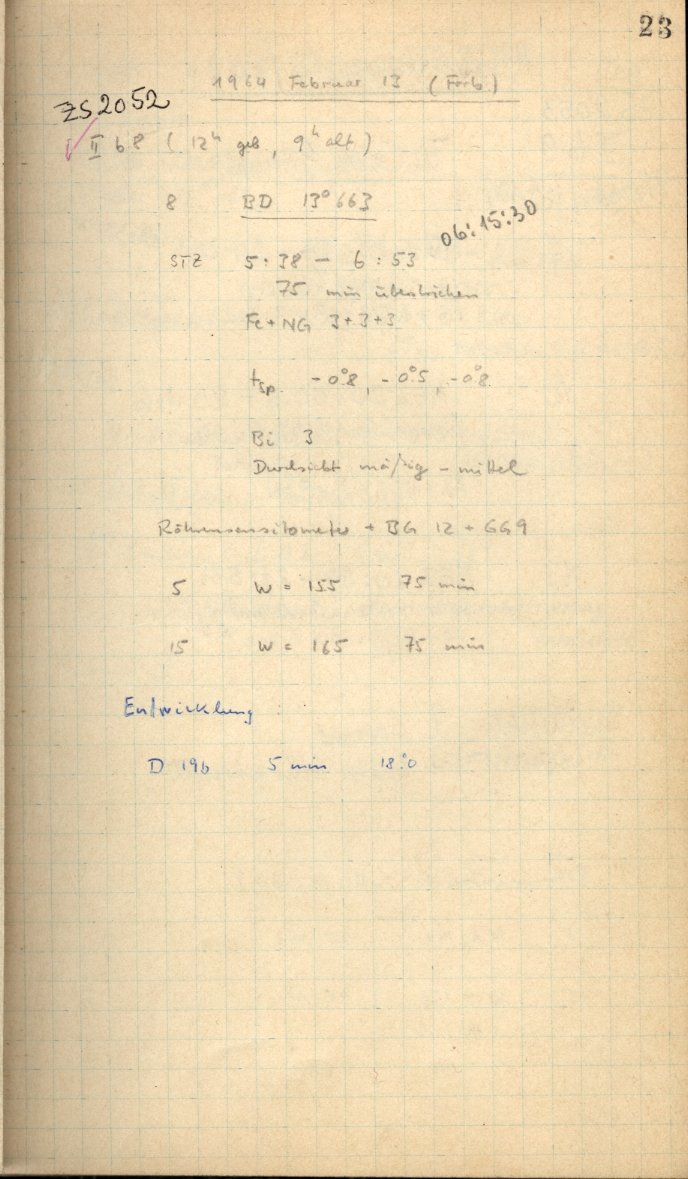 23
1964 Februar 13 (Förb)
ZS2052
II b 8 (12ʰ geb, 9ʰ alt)
8 BD 13°663
06:15:30
STZ 5:38 – 6:53
75 min überstrichen
Fe + NG 3+3+3
t_sp. -0°.8, -0°.5, -0°.8
Bi 3
Durchsicht mäßig – mittel
Röhrensensitometer + BG 12 + GG9
5 W = 155 75 min
15 W = 165 75 min
Entwicklung:
D 19b 5 min 18°.0